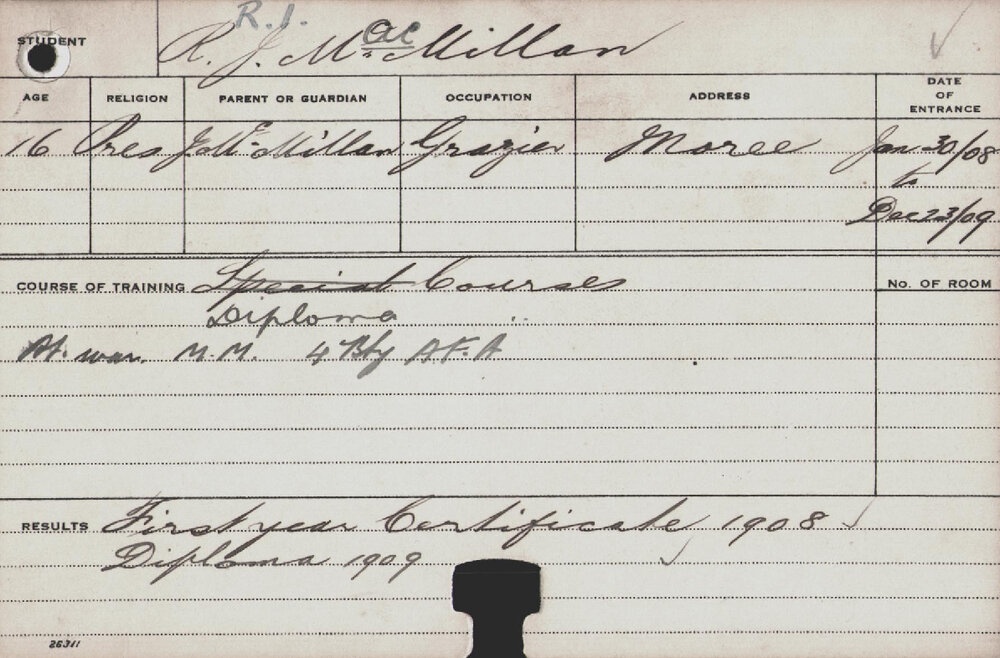 R.I.
STUDENT R. J. MacMillan
AGE RELIGION PARENT OR GUARDIAN OCCUPATION ADDRESS DATE OF ENTRANCE
16 Pres J. McMillan Grazier Moree Jan 30/08
to
Dec 23/09
COURSE OF TRAINING Special Courses No. OF ROOM
Diploma
At war. M.M. 4 Bty A.F.A
RESULTS First year Certificate 1908
Diploma 1909
26311